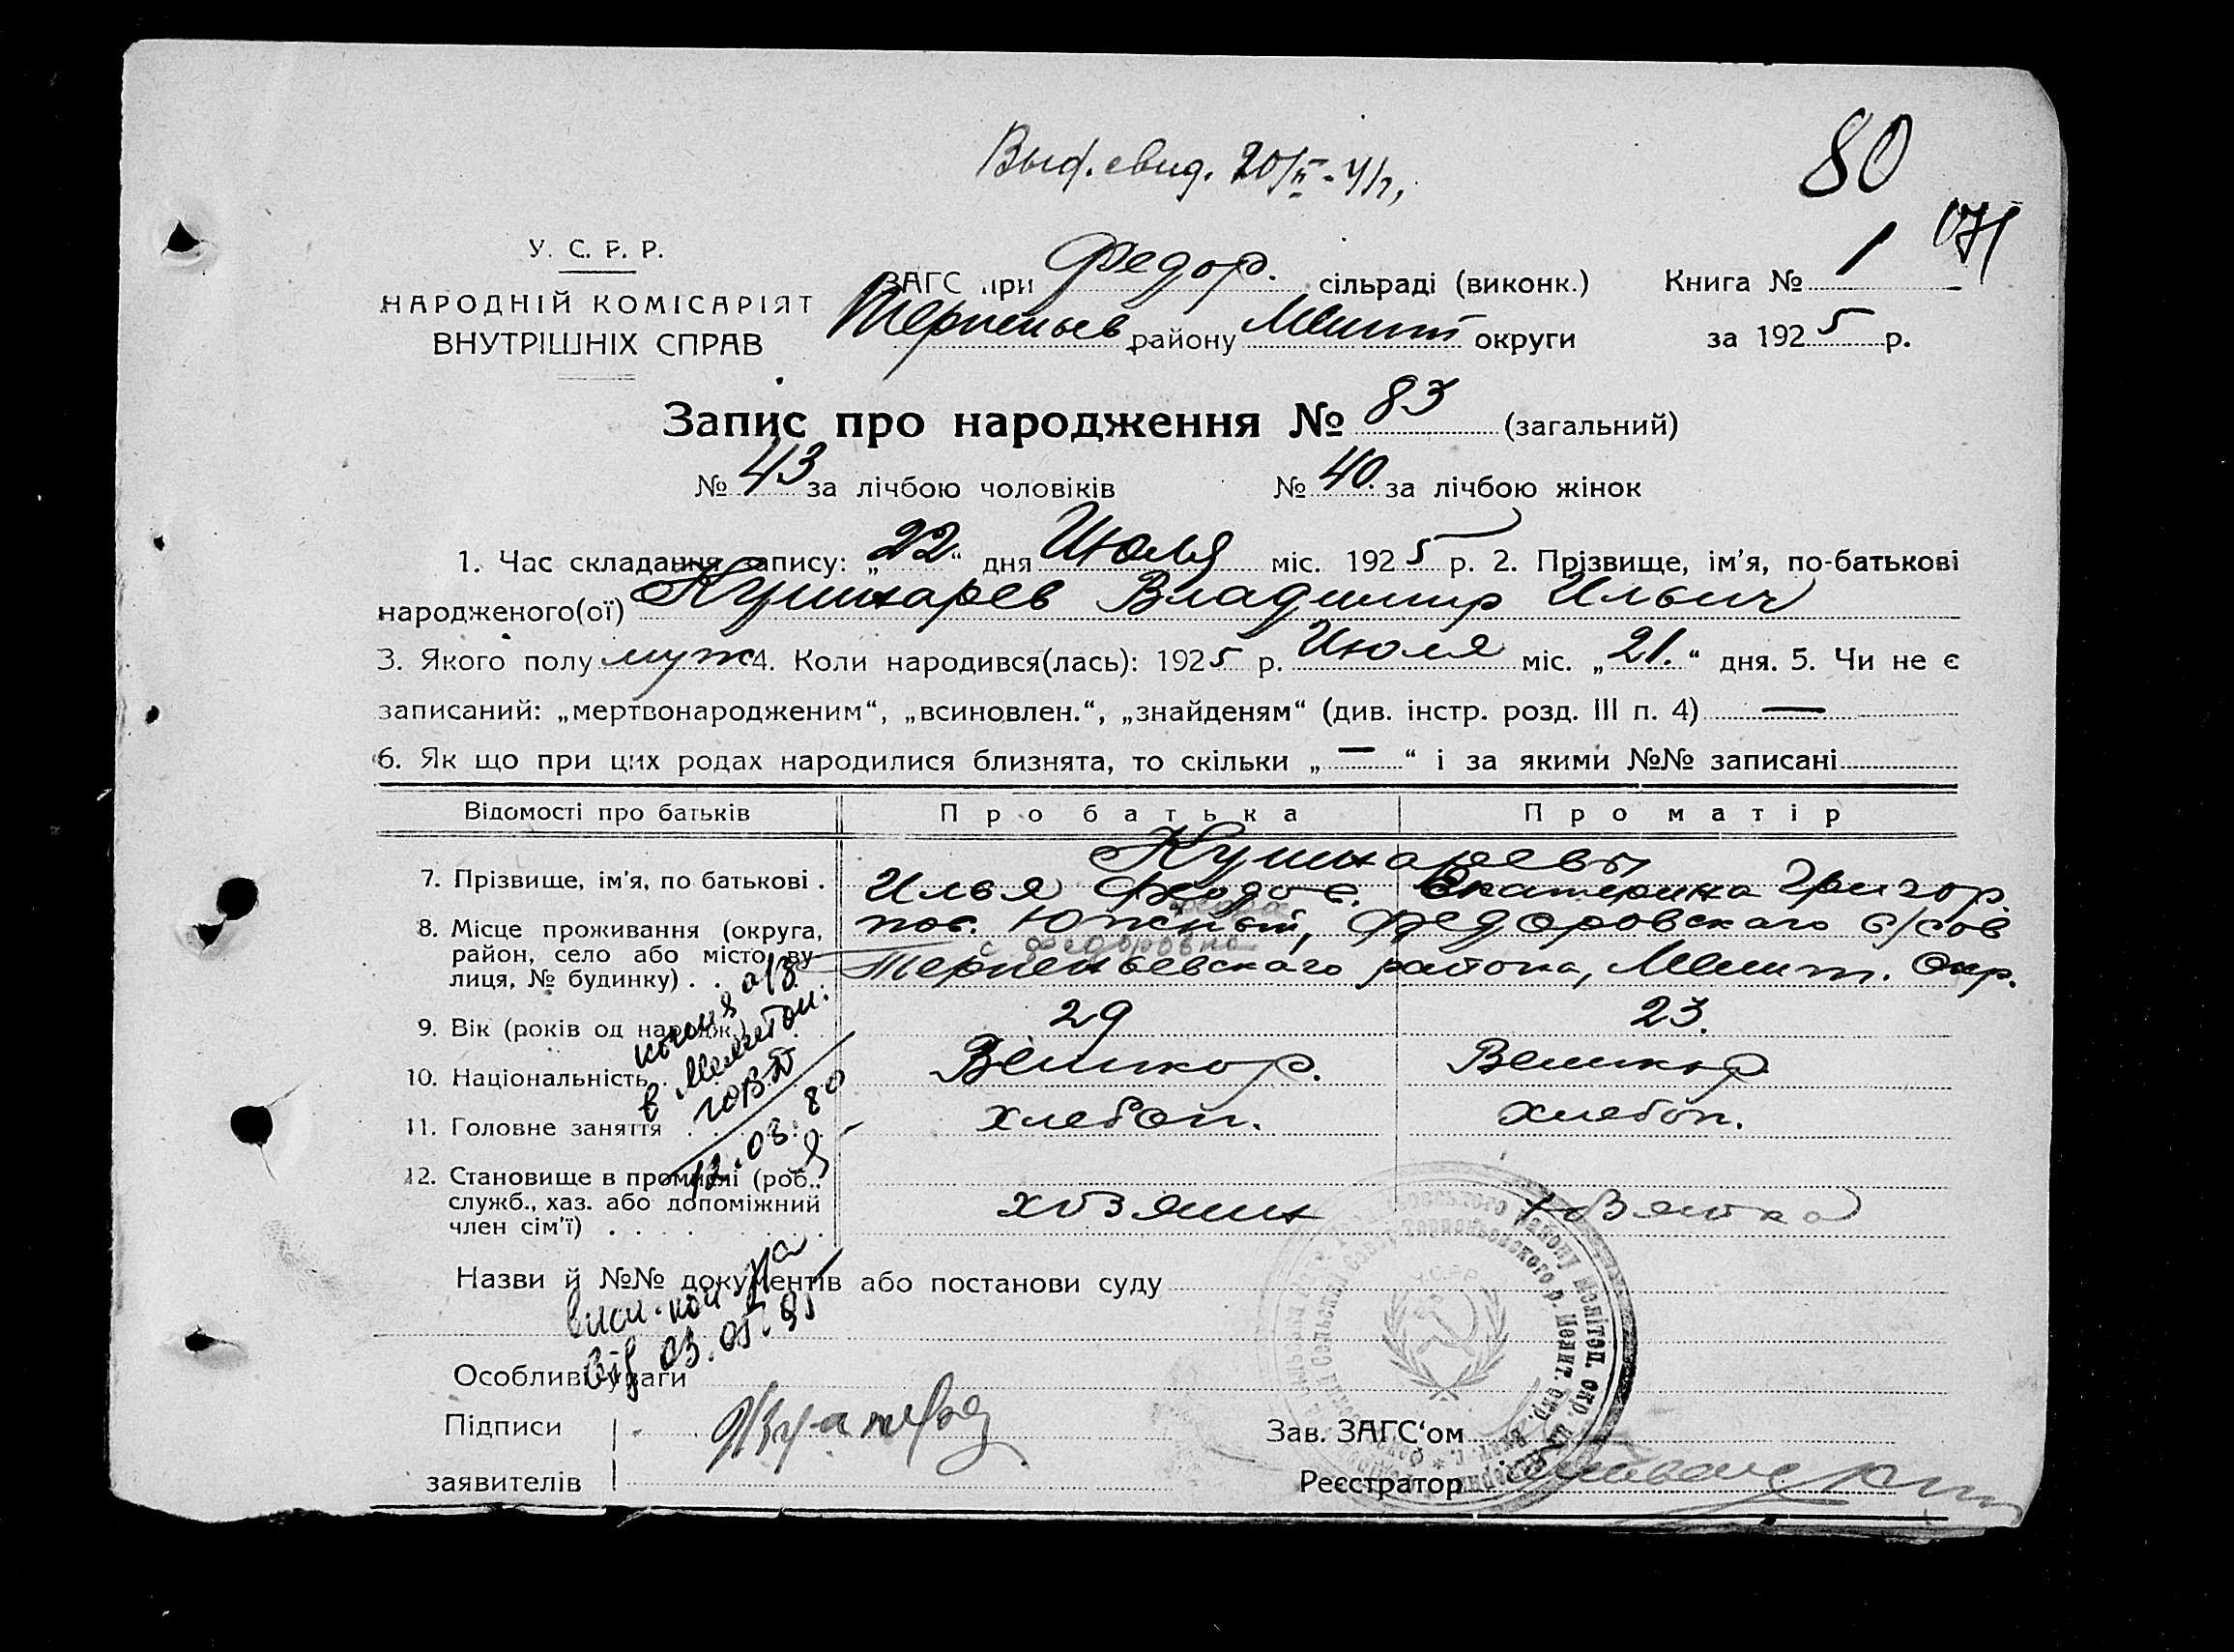 Выд. свид. 20/II - 41 г.
80
071
У. С. Р. Р.
НАРОДНІЙ КОМІСАРІЯТ
ВНУТРІШНІХ СПРАВ
ЗАГС при Федор. сільраді (виконк.) Книга № 1
Терпеньев району Мелит округи за 1925 р.
Запис про народження № 83 (загальний)
№ 43 за лічбою чоловіків № 40. за лічбою жінок
1. Час складання запису: „22“ дня Июля міс. 1925 р. 2. Прізвище, ім'я, по-батькові
народженого(ої) Кушнарев Владимир Ильич
3. Якого полу муж 4. Коли народився(лась): 1925 р. Июля міс. „21.“ дня. 5. Чи не є
записаний: „мертвонародженим“, „всиновлен.“, „знайденям“ (див. інстр. розд. III п. 4) —
6. Як що при цих родах народилися близнята, то скільки „—“ і за якими №№ записані
Відомості про батьків Про батька Про матір
Кушнаревы
7. Прізвище, ім'я, по батькові . Илья Федос. Екатерина Григор.
8. Місце проживання (округа, пос. Южный, Федоровского с/сов
с Федоровка
район, село або місто, ву-
лиця, № будинку) . . Терпеньевского района, Мелит. Окр.
9. Вік (років од народж.) 29 23.
10. Національність . Великор. Великор
11. Головне заняття . . хлебоп. хлебоп.
12. Становище в промислі (роб.,
служб., хаз. або допоміжний хозяин хозяйка
член сім'ї) . . . .
копия а/з
в Мелитоп.
ГОВД
12.03.80
Назви й №№ документів або постанови суду
від 03.05.95
Особливі уваги
Підписи
заявителів
Зав. ЗАГС'ом
Реєстратор